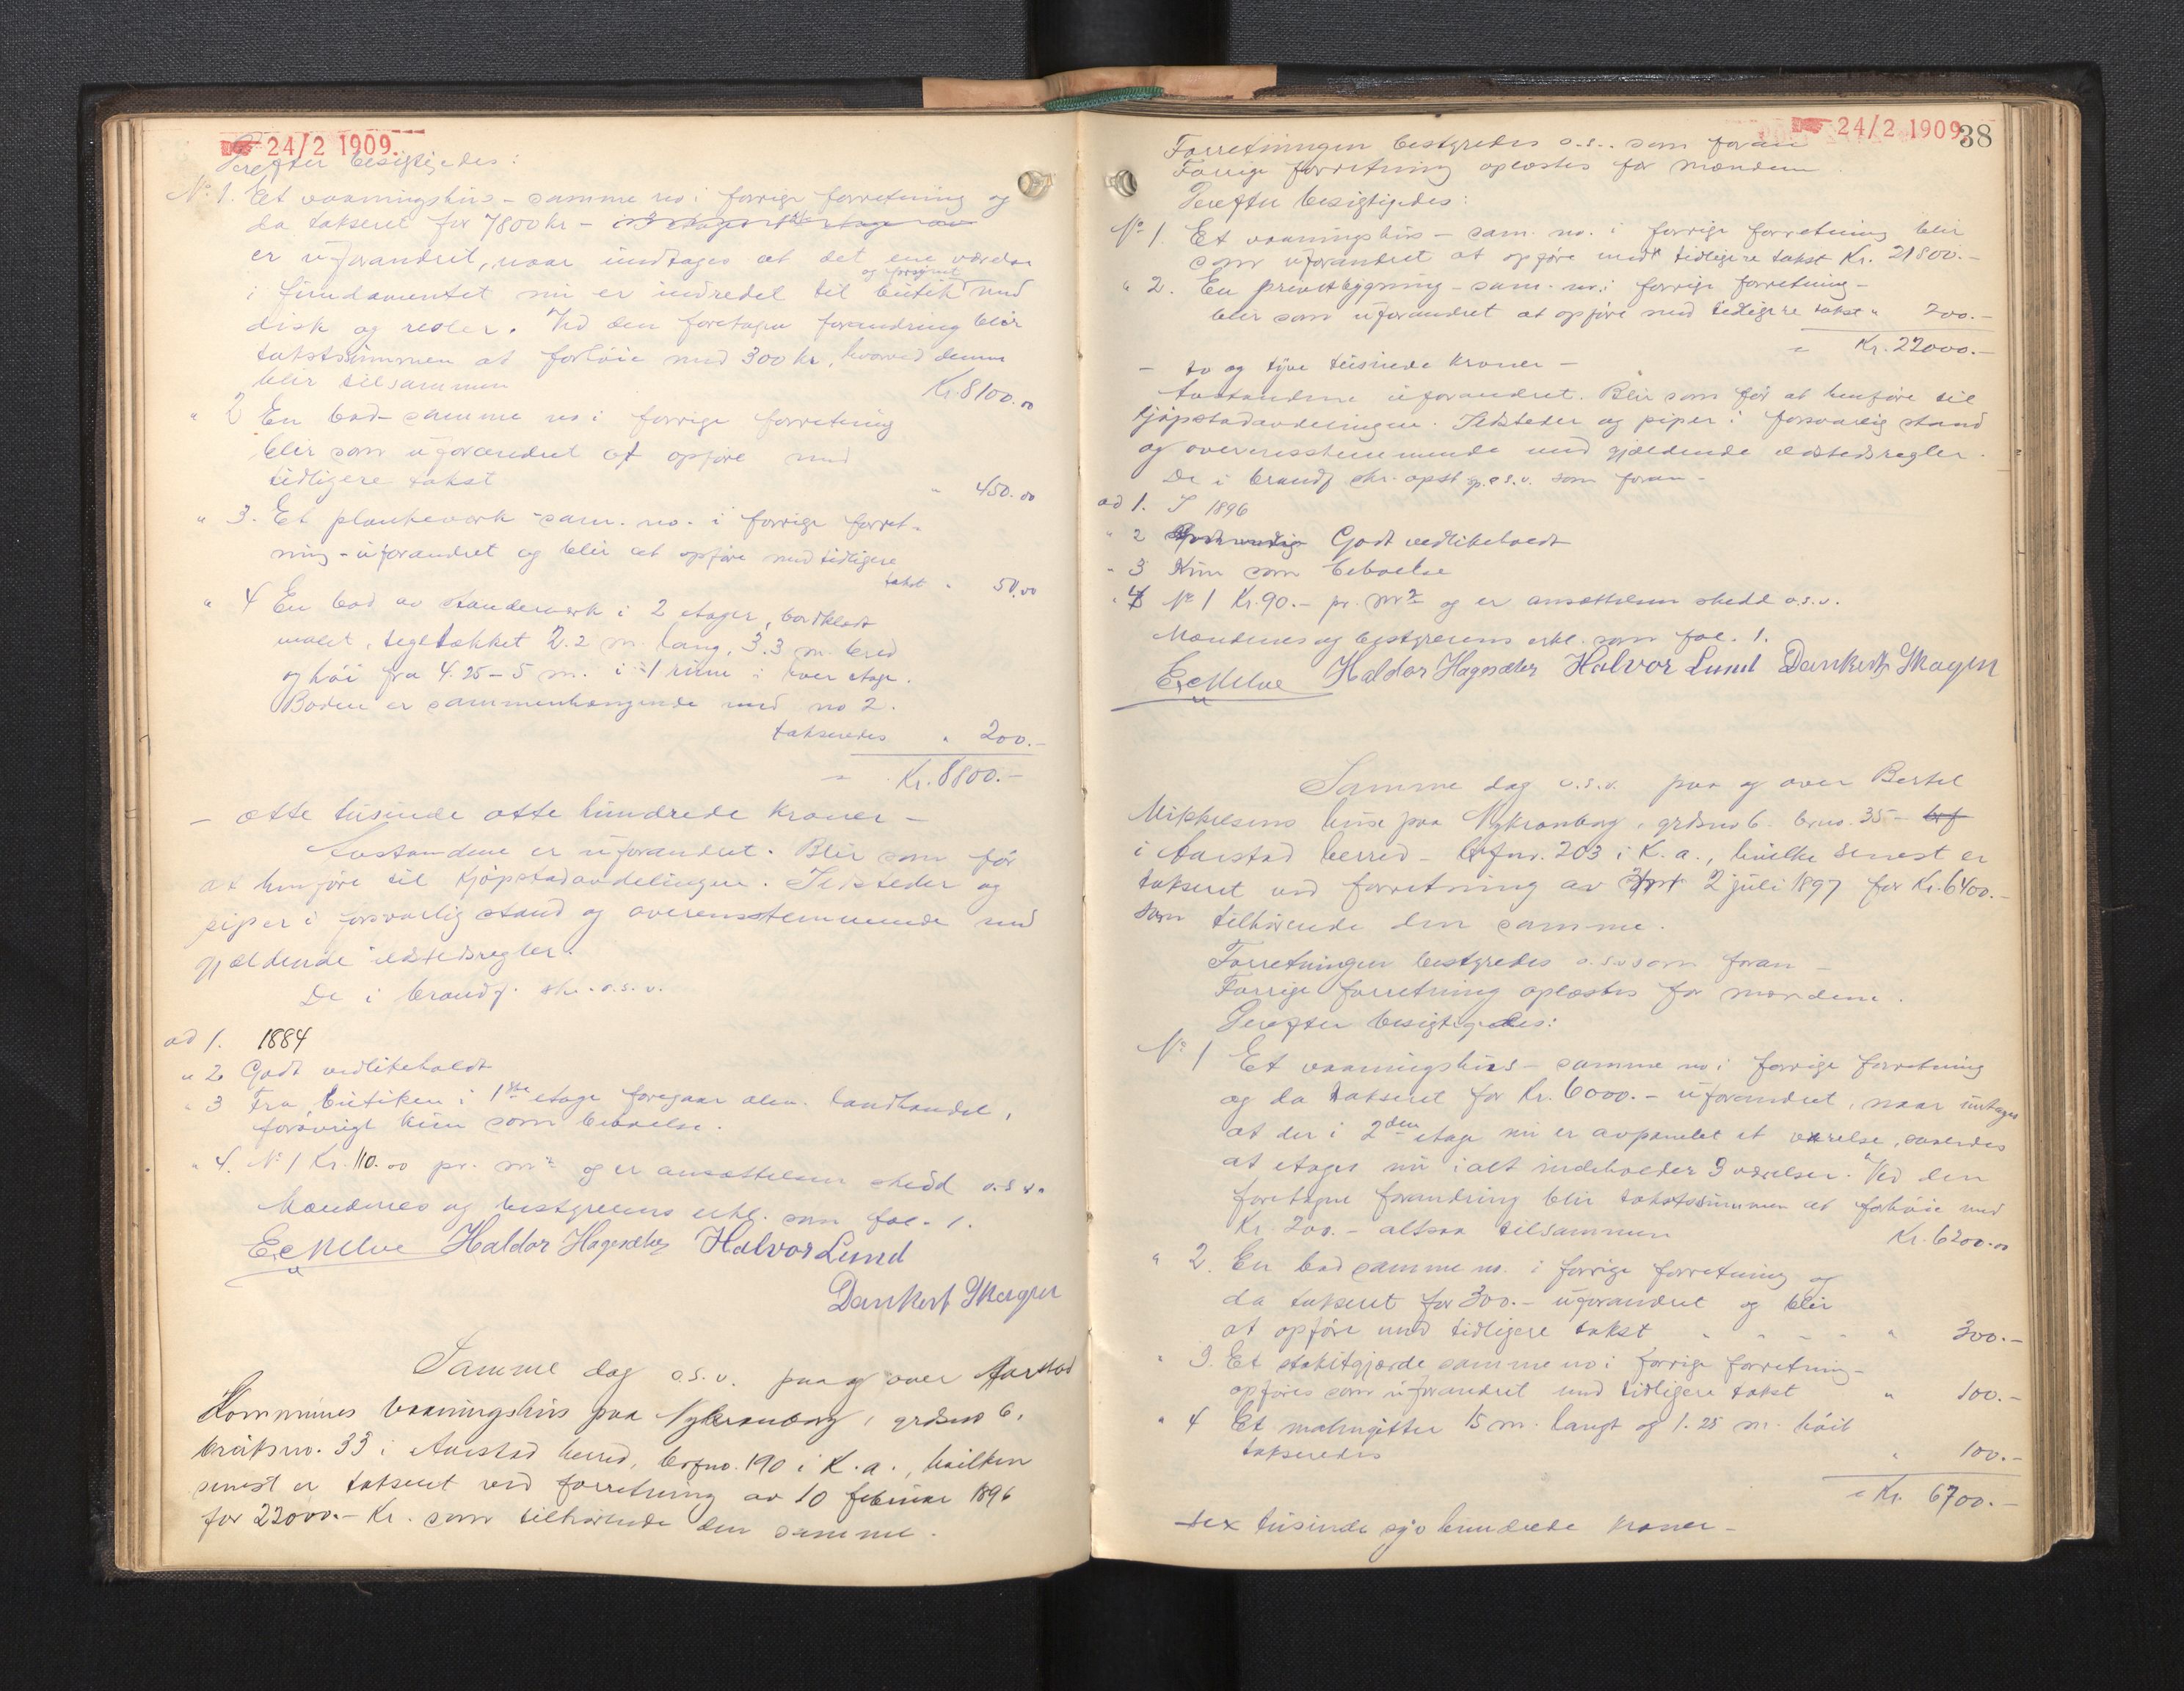 24/2 1909.
Derefter besigtigedes:
No 1. Et vaaningshus - samme no i forrige forretning og
da takseret for 7800 kr -
er uforandret, naar undtages at det ene værelse
og forsynet
i fundamentet nu er indredet til butik med
disk og reoler. Ved den foretagne forandring blir
takstsummen at forhöie med 300 kr, hvorved denne
blir tilsammen Kr. 8100.00
" 2 En bod - samme no i forrige forretning
blir som uforandret at opföre med
tidligere takst " 450.00
" 3. Et plankeverk - sam. no. i forrige forret-
ning - uforandret og blir at opföre med tidligere
takst " 50.00
" 4 En bod av standerverk i 2 etager, bordklædt
malet, tegltækket 2.2 m. lang, 3.3 m. bred
og höi fra 4.25 - 5 m. i 1 rum i hver etage.
Boden er sammenhængende med no 2.
takseredes " 200.-
= Kr. 8800.-
- otte tusinde otte hundrede kroner -
Avstandene er uforandret. Blir som för
at henföre til kjöpstadavdelingen. Ildsteder og
piper i forsvarlig stand og overensstemmende med
gjældende ildstedsregler.
De i brandf. skr. o.s.v.
ad 1. 1884
" 2 Godt vedlikeholdt
" 3 Fra butiken i 1ste etage foregaar alm. landhandel,
forövrigt kun som beboelse.
" 4. No 1 Kr. 110.00 pr. m2 og er ansættelsen skedd o.s.v.
Mændenes og bestyrerens erkl. som fol. 1.
E. Melve Haldor Hagesæter Halvor Lund
Dankert Skagen
Samme dag o.s.v. paa og over Aarstad
Kommunes vaaningshus paa Nykronborg, grdsno 6,
bruksno. 33 i Aarstad herred, brfno. 190 i K.a., hvilken
senest er takseret ved forretning av 10 februar 1896
for 22000.- Kr. som tilhörende den samme.
24/2 1909.
38
Forretningen bestyredes o.s.v. som foran
Forrige forretning oplæstes for mændene.
Derefter besigtigedes:
No 1. Et vaaningshus - sam. no. i forrige forretning blir
som uforandret at opföre med tidligere takst Kr. 21800.-
" 2. En privetbygning - sam. no. i forrige forretning -
blir som uforandret at opföre med tidligere takst " 200.-
= Kr. 22000.-
- to og tyve tusinde kroner -
Avstandene uforandret. Blir som för at henföre til
kjöpstadavdelingen. Ildsteder og piper i forsvarlig stand
og overensstemmende med gjældende ildstedsregler.
De i brandf. skr. opst. sp. o.s.v. som foran -
ad 1. I 1896
" 2 Godt vedlikeholdt
" 3 Kun som beboelse
" 4 No 1 Kr. 90.- pr. m2 og er ansættelsen skedd o.s.v.
Mændenes og bestyrerens erkl. som fol. 1.
E. Melve Haldor Hagesæter Halvor Lund Dankert Skagen
Samme dag o.s.v. paa og over Bertel
Mikkelsens huse paa Nykronborg, grdsno 6. brno. 35 -
i Aarstad herred - brfnr. 203 i K.a., hvilke senest er
takseret ved forretning av 2 juli 1897 for Kr. 6400.-
som tilhörende den samme.
Forretningen bestyredes o.s.v. som foran -
Forrige forretning oplæstes for mændene.
Derefter besigtigedes:
No 1 Et vaaningshus - samme no i forrige forretning
og da takseret for Kr. 6000.- uforandret, naar undtages
at der i 2den etage nu er avpanelet et værelse, saaledes
at etagen nu ialt indeholder 3 værelser. Ved den
foretagne forandring blir takstsummen at forhöie med
Kr. 200.- altsaa tilsammen Kr. 6200.00
" 2. En bod samme no. i forrige forretning og
da takseret for 300.- uforandret og blir
at opföre med tidligere takst " 300.-
" 3. Et stakitgjærde samme no i forrige forretning -
opföres som uforandret med tidligere takst " 100.-
" 4 Et malmgitter 15 m. langt og 1.25 m. höit
takseredes " 100.-
= Kr. 6700.-
- sex tusinde syv hundrede kroner -